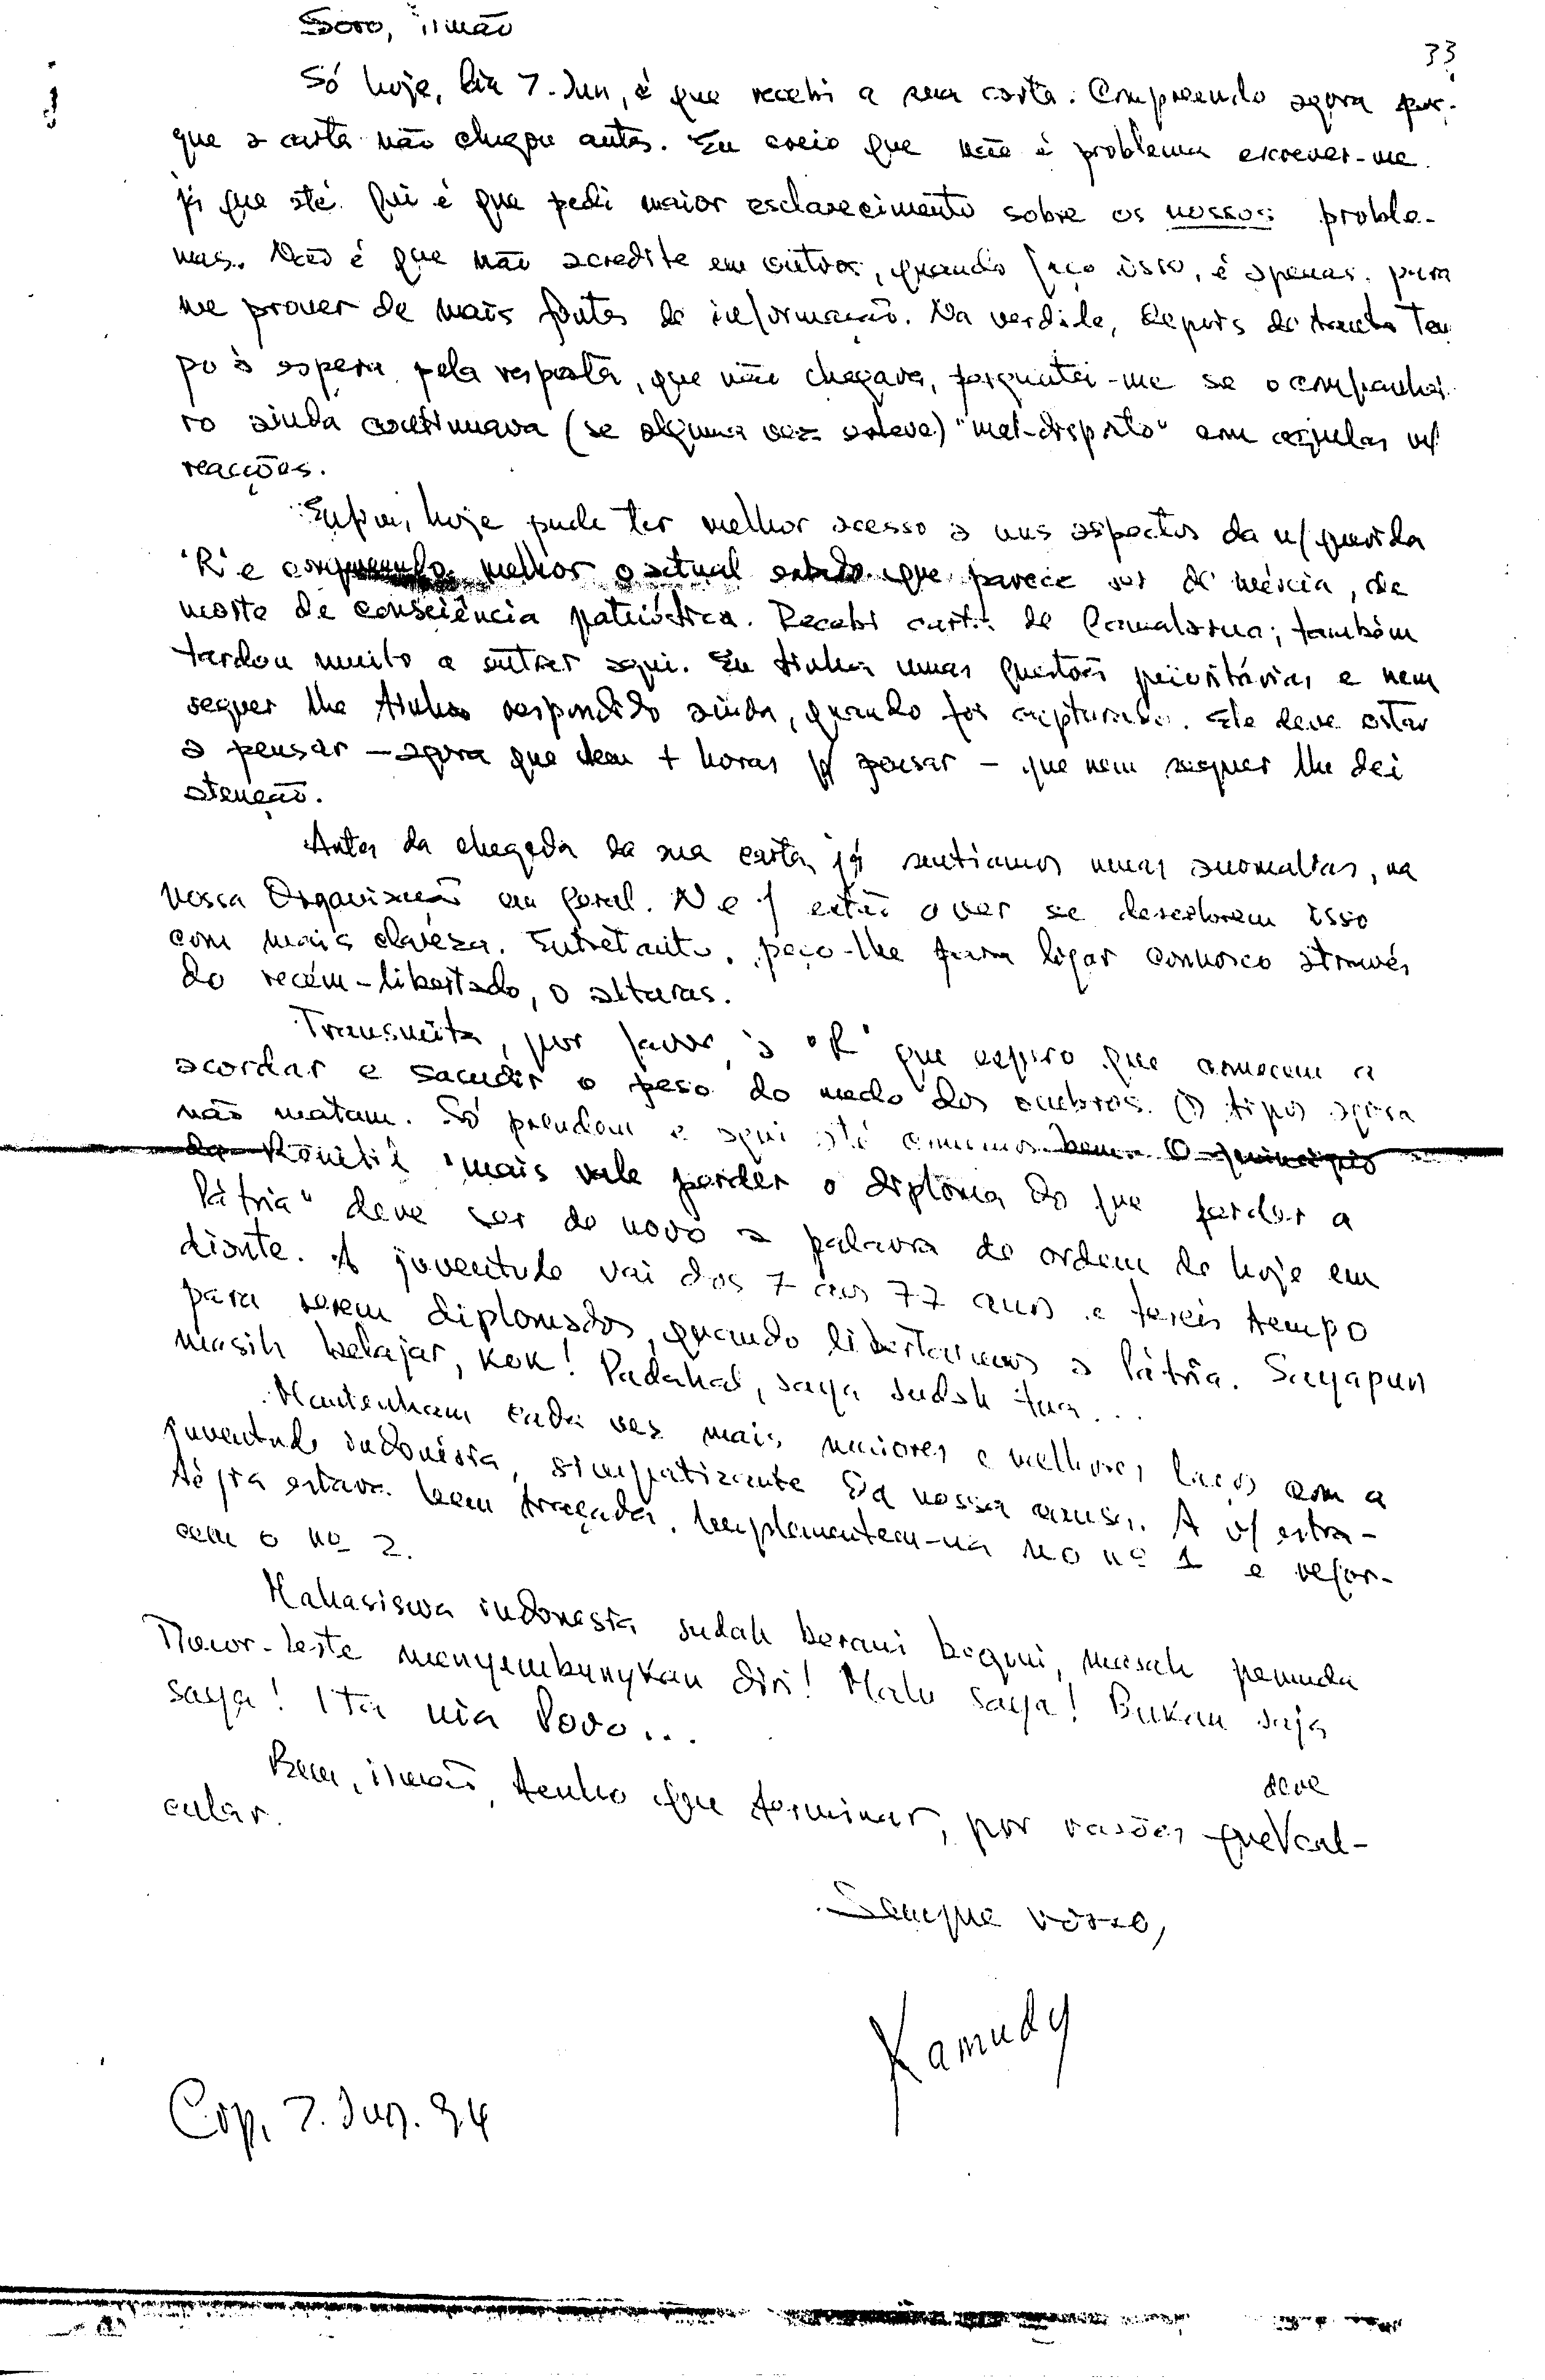 Soro, irmão
33
Só hoje, dia 7. Jun, é que recebi a sua carta. Compreendo agora por-
que a carta não chegou antes. Eu creio que não é problema escrever-me
já que até fui é que pedi maior esclarecimento sobre os nossos proble-
mas. Não é que não acredite em outros, quando faço isso, é apenas para
me prover de mais fontes de informação. Na verdade, depois de tanto tem
po à espera pela resposta, que não chegava, perguntei-me se o companhei
ro ainda continuava (se alguma vez esteve) "mal-disposto" com aquelas m/
reacções.
Enfim, hoje pude ter melhor acesso a uns aspectos da n/ querida
"R" e compreendo melhor o actual estado que parece ser de inércia, de
morte de consciência patriótica. Recebi carta de ; também
tardou muito a entrar aqui. Eu tinha umas questões prioritárias e nem
sequer lhe tinha respondido ainda, quando foi capturado. Ele deve estar
a pensar - agora que tem + horas p/ pensar - que nem sequer lhe dei
atenção.
Antes da chegada da sua carta, já sentíamos umas anomalias, na
nossa Organização em geral. N e J estão a ver se descobrem isso
com mais clareza. Entretanto, peço-lhe para ligar connosco através
do recém-libertado, o alturas.
Transmita, por favor, à "R" que espero que comecem a
acordar e sacudir o peso do medo dos ombros. Os tipos agora
não matam. Só prendem e aqui até comemos bem. O princípio
da Renetil "mais vale perder o diploma do que perder a
Pátria" deve ser de novo a palavra de ordem de hoje em
diante. A juventude vai dos 7 aos 77 anos e tereis tempo
para serem diplomados, quando libertarmos a Pátria. Sayapun
masih belajar, kok! Padahal, saya sudah tua...
Mantenham cada vez mais maiores e melhores laços com a
juventude indonésia, simpatizante da nossa causa. A v/ estra-
tégia estava bem traçada. Implementem-na no nº 1 e refor-
cem o nº 2.
Mahasiswa indonesia sudah berani begini, masak pemuda
Timor-Leste menyembunykan diri! Malu saya! Bukan saja
saya! Ita nia Povo...
Bem, irmão, tenho que terminar, por razões que deve cal-
cular.
Sempre vosso,
Kamudy
Cip, 7. Jun. 94